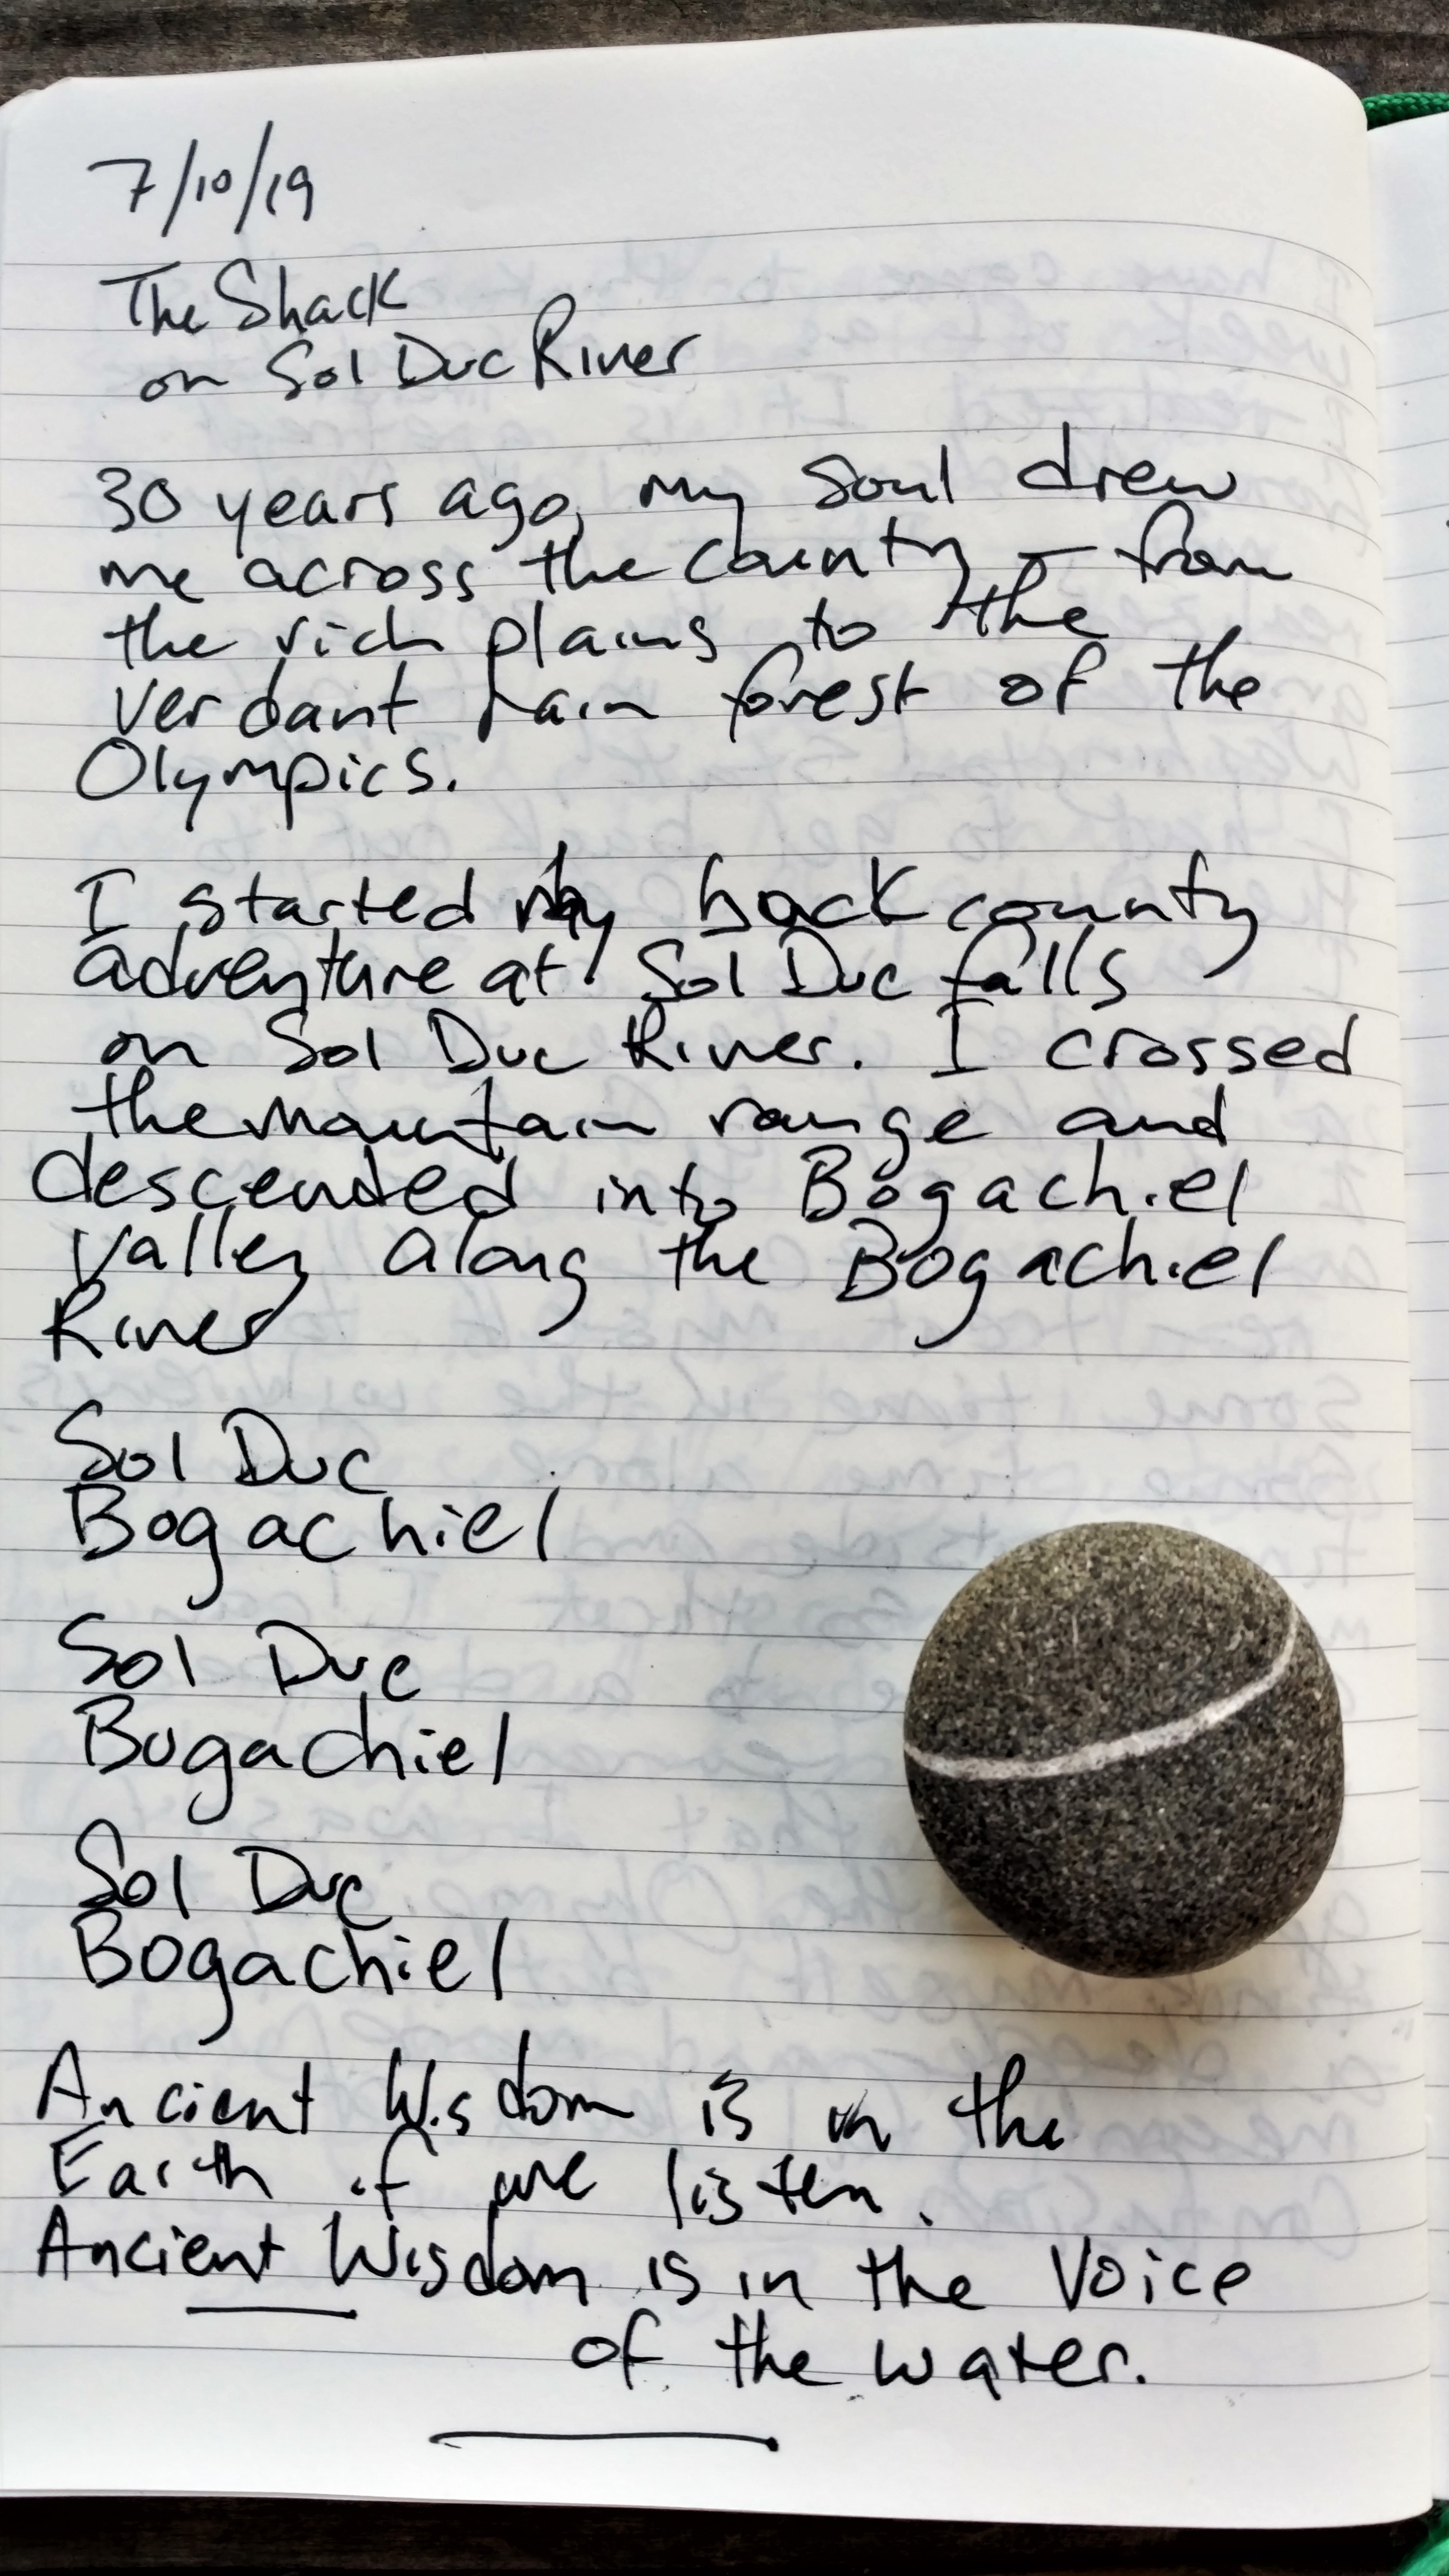 7/10/19
The Shack
on Sol Duc River
30 years ago, my soul drew
me across the county – from
the rich plains to the
verdant rain forest of the
Olympics.
I started my backcounty
adventure at Sol Duc falls
on Sol Duc River. I crossed
the mountain range and
descended into Bogachiel
Valley along the Bogachiel
River
Sol Duc
Bogachiel
Sol Duc
Bogachiel
Sol Duc
Bogachiel
Ancient Wisdom is in the
Earth if we listen.
Ancient Wisdom is in the Voice
of the water.